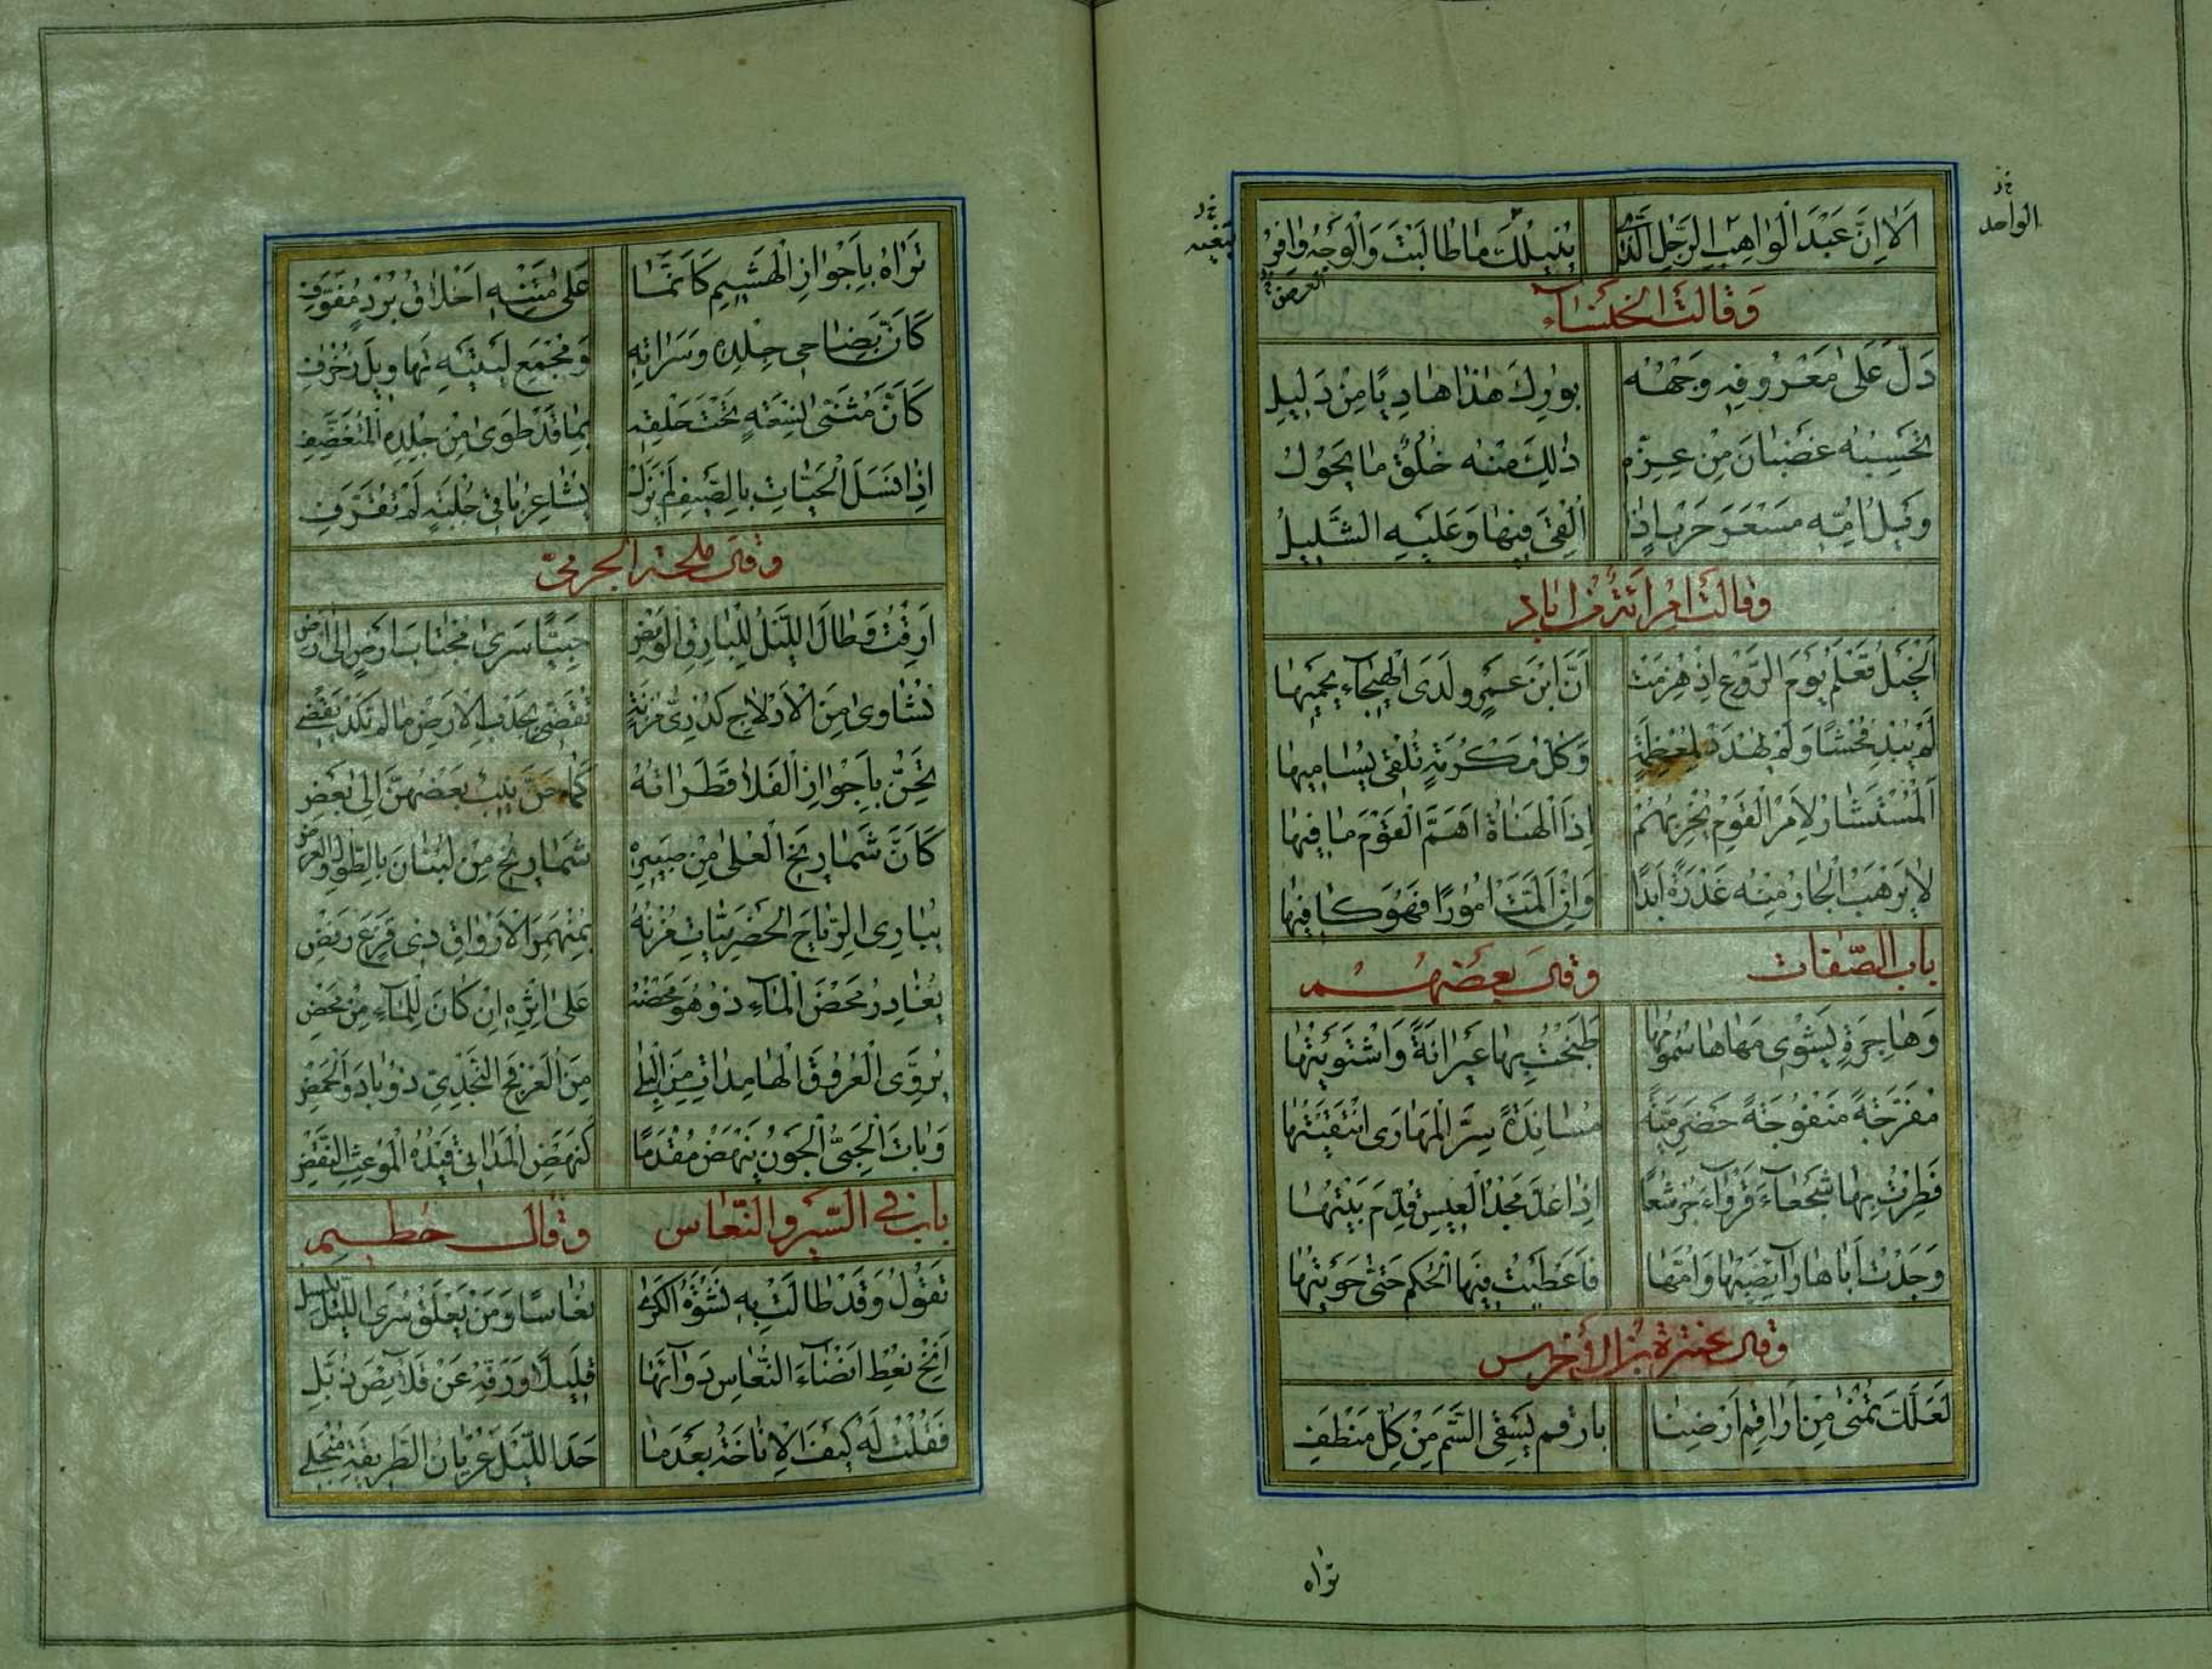 اَلا اِنَّ عَبْدَ الْوَاهِبِ الرَّجُلِ الَّذِي يُنِيلُكَ مَا طَالَبْتَ وَالْوَجْهُ وَافِرُ
الواحد
العرض
وَقَالَتِ الْخَنْسَاءُ
دَلَّ عَلَى مَعْرُوفِهِ وَجْهُهُ بُورِكَ هٰذَا هَادِيًا مِنْ دَلِيلِ
تَحْسِبُهُ غَضْبَانَ مِنْ عِزِّهِ ذٰلِكَ مِنْهُ خُلُقٌ مَا يَحُولُ
وَيْلُ امِّهِ مِسْعَرَ حَرْبٍ اِذَا اُلْقِيَ فِيهَا وَعَلَيْهِ الشَّلِيلُ
وَقَالَتِ امْرَاَئَةٌ مِنْ اِيَادٍ
اَلْخَيْلُ تَعْلَمُ يَوْمَ الرَّوْعِ اِذْ هُزِمَتْ اَنَّ ابْنَ عَمْرٍو لَدَى الْهَيْجَاءِ يَحْمِيهَا
لَمْ يُبْدِ فُحْشًا وَلَمْ يُهْدَدْ لِمُعْظِمَةٍ وَكُلُّ مَكْرُمَةٍ تُلْقَى يُسَامِيهَا
اَلْمُسْتَشَارُ لِاَمْرِ الْقَوْمِ يَحْزِبُهُمْ اِذَا الْهَنَاةُ اَهَمَّ الْقَوْمَ مَا فِيهَا
لَا يَرْهَبُ الْجَارُ مِنْهُ غَدْرَةً اَبَدًا وَاِنْ اَلَمَّتْ اُمُورًا فَهُوَ كَافِيهَا
بَابُ الصِّفَاتِ وَقَالَ بَعْضُهُمْ
وَهَاجِرَةٍ يَشْوِي مَهَاهَا سَمُومُهَا طَبَخْتُ بِهَا عَيْرَانَةً وَاشْتَوَيْتُهَا
مُفَرَّجَةً مَنْفُوجَةً حَضْرَمِيَّةً مُسَانِدَةً سِرَّ الْمَهَارَى انْتَقَيْتُهَا
فَطِرْتُ بِهَا شَجْعَاءَ قَرْوَاءَ جُرْشُعًا اِذَا عُدَّ مَجْدُ الْعِيسِ قُدِّمَ بَيْتُهَا
وَجَدْتُ اَبَاهَا رَايِضَيْهَا وَاُمَّهَا فَاَعْطَيْتُ فِيهَا الْحُكْمَ حَتَّى حَوَيْتُهَا
وَقَالَ عَنْتَرَةُ بْنُ الْاَخْرَسِ
لَعَلَّكَ تُمْنَى مِنْ اَرَاقِمِ اَرْضِنَا بِاَرْقَمَ يُسْقَى السَّمَّ مِنْ كُلِّ مَنْطَفِ
تراه
تَرَاهُ بِاَجْوَازِ الْهَشِيمِ كَاَنَّمَا عَلَى مَتْنِهِ اَخْلَاقُ بُرْدٍ مُفَوَّفِ
كَاَنَّ بِضَاحِي جِلْدِهِ وَسَرَاتِهِ وَمَجْمَعِ لِيتَيْهِ تَهَاوِيلَ زُخْرُفِ
كَاَنَّ مُثَنَّى نِسْعَةٍ تَحْتَ حَلْقِهِ بِمَا قَدْ طَوَى مِنْ جِلْدِهِ الْمُتَغَضِّفِ
اِذَا نَسَلَ الْحَيَّاتُ بِالصَّيْفِ لَمْ يَزَلْ يُشَاعِرُ بَاقِي جُلْبَةٍ لَمْ تُقَرَّفِ
وَقَالَ مِلْحَةُ الْجَرْمِيُّ
اَرِقْتُ وَطَالَ اللَّيْلُ لِلْبَارِقِ الْوَمْضِ حَبِيًّا سَرَى مُجْتَابَ اَرْضٍ اِلَى اَرْضِ
نَشَاوَى مِنَ الْاَدْلَاجِ كُدْرِيُّ مُزْنَةٍ تُقَضِّي بِجَدْبِ الْاَرْضِ مَا لَمْ تَكَدْ تَقْضِي
تَحِنُّ بِاَجْوَازِ الْفَلَا قَطَرَاتُهُ كَمَا حَنَّ نِيبٌ بَعْضُهُنَّ اِلَى بَعْضِ
كَاَنَّ شَمَارِيخَ الْعُلَى مِنْ صَبِيرِهِ شَمَارِيخُ مِنْ لُبْنَانَ بِالطُّولِ وَالْعَرْضِ
يُبَارِي الرِّيَاحَ الْحَضْرَمِيَّاتِ مُزْنُهُ بِمُنْهَمِرِ الْاَرْوَاقِ ذِي قَزَعٍ رَفْضِ
يُغَادِرُ مَحْضَ الْمَاءِ ذُو هُوَ مَحْضُهُ عَلَى اِثْرِهِ اِنْ كَانَ لِلْمَاءِ مِنْ مَحْضِ
يُرَوِّي الْعُرُوقَ الْهَامِدَاتِ مِنَ الْبِلَى مِنَ الْعَرْفَجِ النَّجْدِيِّ ذُو بَادَ وَالْحَمْضِ
وَبَاتَ الْحَبِيُّ الْجَوْنُ يَنْهَضُ مُقْدِمًا كَنَهْضِ الْمُدَانَى قَيْدُهُ الْمُوعِثِ النِّقْضِ
بَابٌ فِي السَّيْرِ وَالنُّعَاسِ وَقَالَ حُطَيْمٌ
تَقُولُ وَقَدْ طَالَتْ بِهِ نَشْوَةُ الْكَرَى نُعَاسًا وَمَنْ يَعْلَقْ سُرَى اللَّيْلِ
اَنِخْ نُعْطِ اَنْضَاءَ النُّعَاسِ دَوَاءَهَا قَلِيلًا وَرَفِّهْ عَنْ قَلَائِصَ ذُبَّلِ
فَقُلْتُ لَهُ كَيْفَ الْاِنَاخَةُ بَعْدَمَا حَدَا اللَّيْلَ عُرْيَانُ الطَّرِيقَةِ مُنْجَلِي